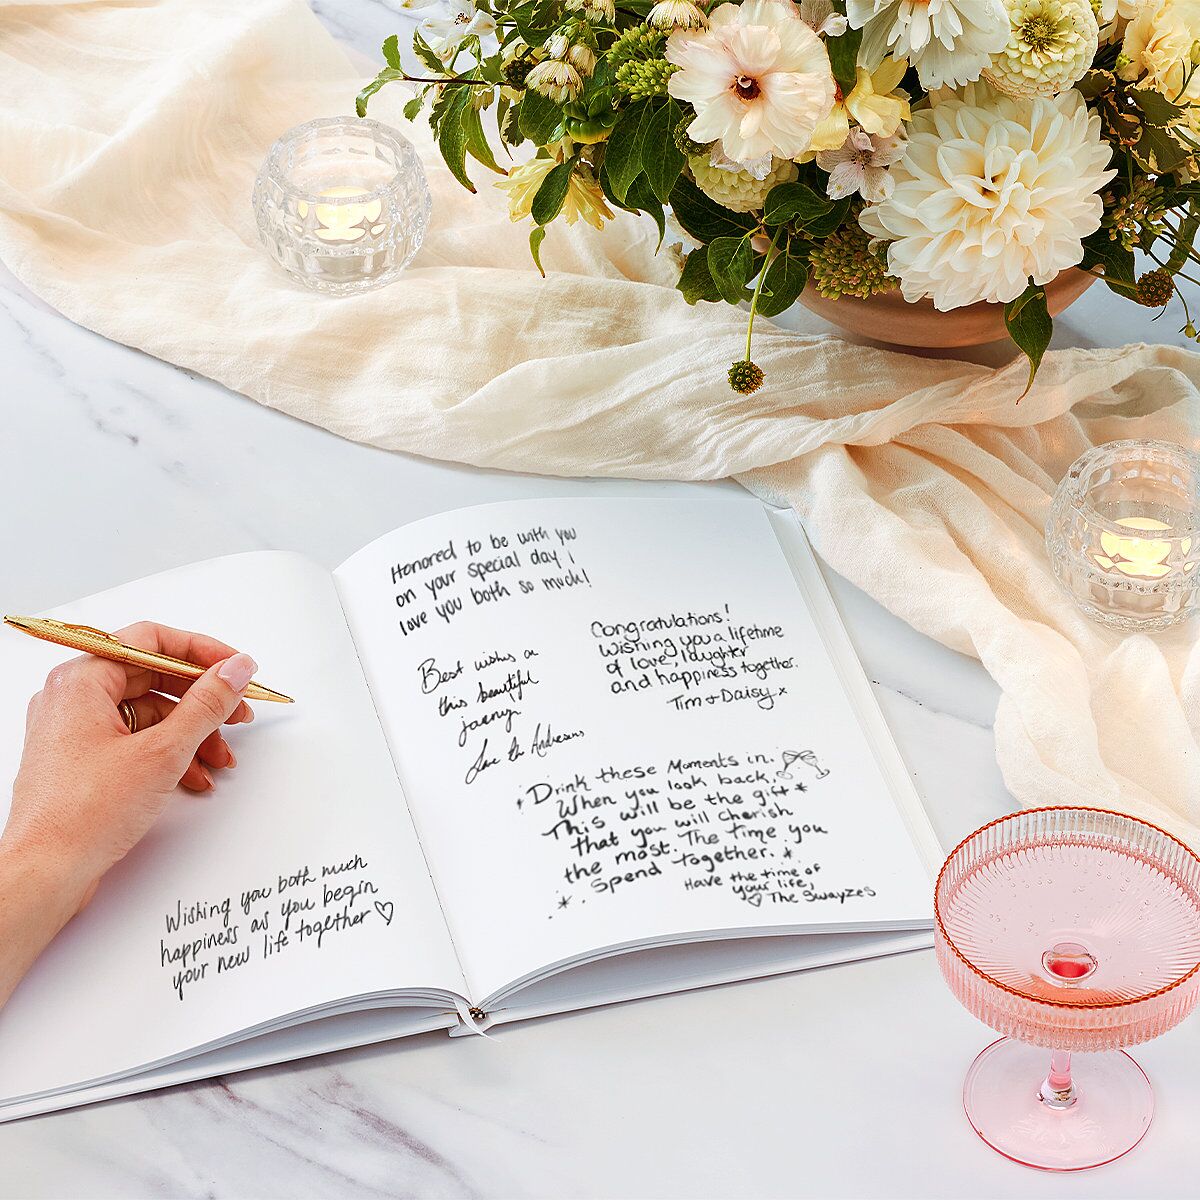 Wishing you both much
happiness as you begin
your new life together ♡
Honored to be with you
on your special day I
love you both so much!
Congratulations!
Wishing you a lifetime
of love, laughter
and happiness together.
Tim + Daisy x
Best wishes on
this beautiful
journey
Love the
Drink these Moments in.
When you look back,
This will be the gift *
that you will cherish
the most. The time you
spend together. *
Have the time of
your life,
♡ The Swayzes